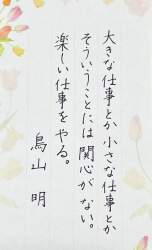 大きな仕事とか小さな仕事とか
そういうことには関心がない。
楽しい仕事をやる。
鳥山 明